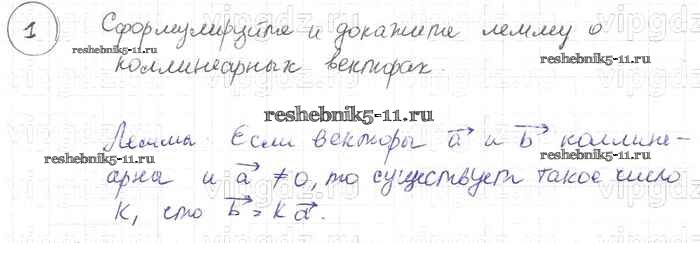 1 Сформулируйте и докажите лемму о
коллинеарных векторах.
reshebnik5-11.ru
reshebnik5-11.ru
reshebnik5-11.ru
Лемма. Если векторы a и b коллине-
reshebnik5-11.ru
арны и a ≠ 0, то существует такое число
reshebnik5-11.ru
K, что b = k a.